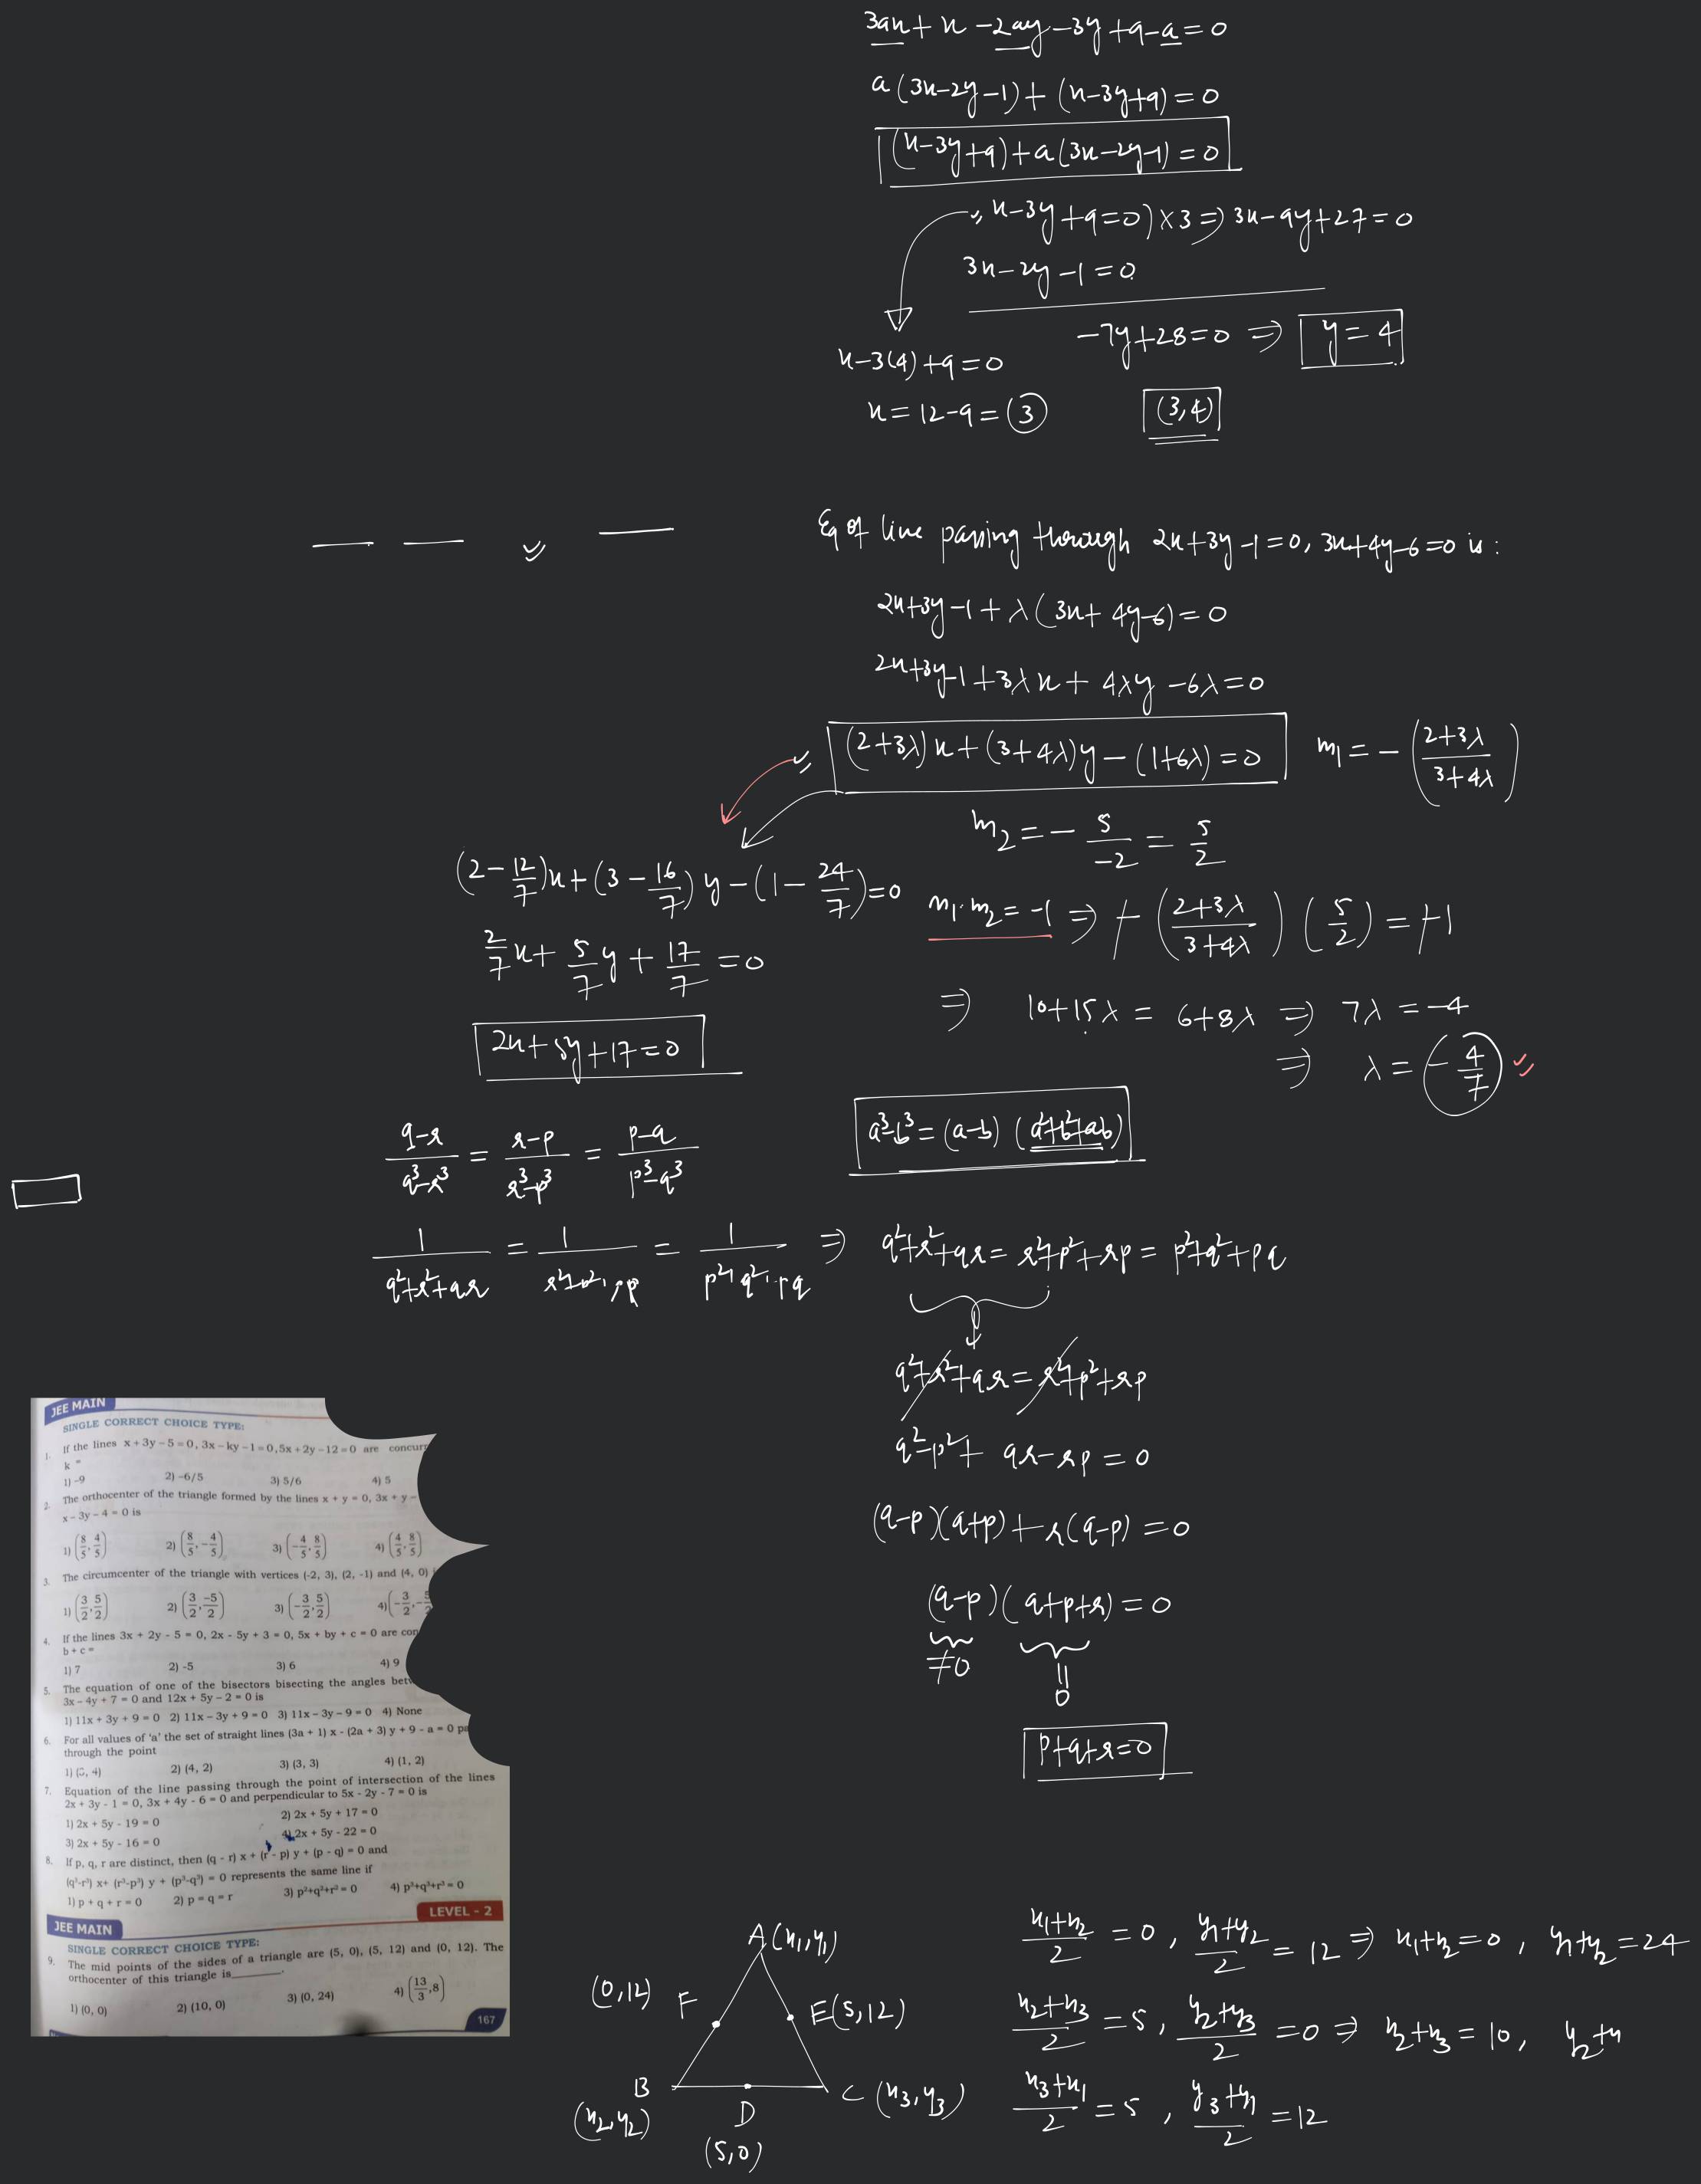 3ax + x - 2ay - 3y + 9 - a = 0
a(3x-2y-1) + (x-3y+9) = 0
(x-3y+9) + a(3x-2y-1) = 0
x-3y+9=0)×3 ⇒ 3x-9y+27=0
3x-2y-1=0
-7y+28=0 ⇒ y=4
x-3(4)+9=0
x=12-9=3
(3,4)
Eq of line passing through 2x+3y-1=0, 3x+4y-6=0 is:
2x+3y-1+λ(3x+4y-6)=0
2x+3y-1+3λx+4λy-6λ=0
(2+3λ)x+(3+4λ)y-(1+6λ)=0
m₁ = -((2+3λ)/(3+4λ))
m₂ = -5/-2 = 5/2
m₁.m₂=-1 ⇒ -((2+3λ)/(3+4λ))(5/2) = -1
⇒ 10+15λ = 6+8λ ⇒ 7λ = -4
⇒ λ = -4/7
(2-12/7)x+(3-16/7)y-(1-24/7)=0
2/7x+5/7y+17/7=0
2x+5y+17=0
(q-r)/(q³-r³) = (r-p)/(r³-p³) = (p-q)/(p³-q³)
a³-b³=(a-b)(a²+b²+ab)
1/(q²+r²+qr) = 1/(r²+p²+rp) = 1/(p²+q²+pq) ⇒ q²+r²+qr = r²+p²+rp = p²+q²+pq
q²+r²+qr=r²+p²+rp
q²-p²+qr-rp=0
(q-p)(q+p)+r(q-p)=0
(q-p)(q+p+r)=0
≠0
0
p+q+r=0
JEE MAIN
SINGLE CORRECT CHOICE TYPE:
1. If the lines x + 3y - 5 = 0, 3x - ky - 1 = 0, 5x + 2y - 12 = 0 are concurr
k =
1) -9 2) -6/5 3) 5/6 4) 5
2. The orthocenter of the triangle formed by the lines x + y = 0, 3x + y -
x - 3y - 4 = 0 is
1) (8/5, 4/5) 2) (8/5, -4/5) 3) (-4/5, 8/5) 4) (4/5, 8/5)
3. The circumcenter of the triangle with vertices (-2, 3), (2, -1) and (4, 0)
1) (3/2, 5/2) 2) (3/2, -5/2) 3) (-3/2, 5/2) 4) (-3/2, -5/2
4. If the lines 3x + 2y - 5 = 0, 2x - 5y + 3 = 0, 5x + by + c = 0 are con
b + c =
1) 7 2) -5 3) 6 4) 9
5. The equation of one of the bisectors bisecting the angles betw
3x - 4y + 7 = 0 and 12x + 5y - 2 = 0 is
1) 11x + 3y + 9 = 0 2) 11x - 3y + 9 = 0 3) 11x - 3y - 9 = 0 4) None
6. For all values of 'a' the set of straight lines (3a + 1) x - (2a + 3) y + 9 - a = 0 pa
through the point
1) (3, 4) 2) (4, 2) 3) (3, 3) 4) (1, 2)
7. Equation of the line passing through the point of intersection of the lines
2x + 3y - 1 = 0, 3x + 4y - 6 = 0 and perpendicular to 5x - 2y - 7 = 0 is
1) 2x + 5y - 19 = 0 2) 2x + 5y + 17 = 0
3) 2x + 5y - 16 = 0 4) 2x + 5y - 22 = 0
8. If p, q, r are distinct, then (q - r) x + (r - p) y + (p - q) = 0 and
(q³-r³) x+ (r³-p³) y + (p³-q³) = 0 represents the same line if
1) p + q + r = 0 2) p = q = r 3) p²+q²+r² = 0 4) p³+q³+r³ = 0
LEVEL - 2
JEE MAIN
SINGLE CORRECT CHOICE TYPE:
9. The mid points of the sides of a triangle are (5, 0), (5, 12) and (0, 12). The
orthocenter of this triangle is________.
1) (0, 0) 2) (10, 0) 3) (0, 24) 4) (13/3, 8)
167
A(x₁,y₁)
(0,12) F E(5,12)
B C (x₃,y₃)
(x₂,y₂) D
(5,0)
(x₁+x₂)/2 = 0, (y₁+y₂)/2 = 12 ⇒ x₁+x₂=0, y₁+y₂=24
(x₂+x₃)/2 = 5, (y₂+y₃)/2 = 0 ⇒ x₂+x₃=10, y₂+y
(x₃+x₁)/2 = 5, (y₃+y₁)/2 = 12